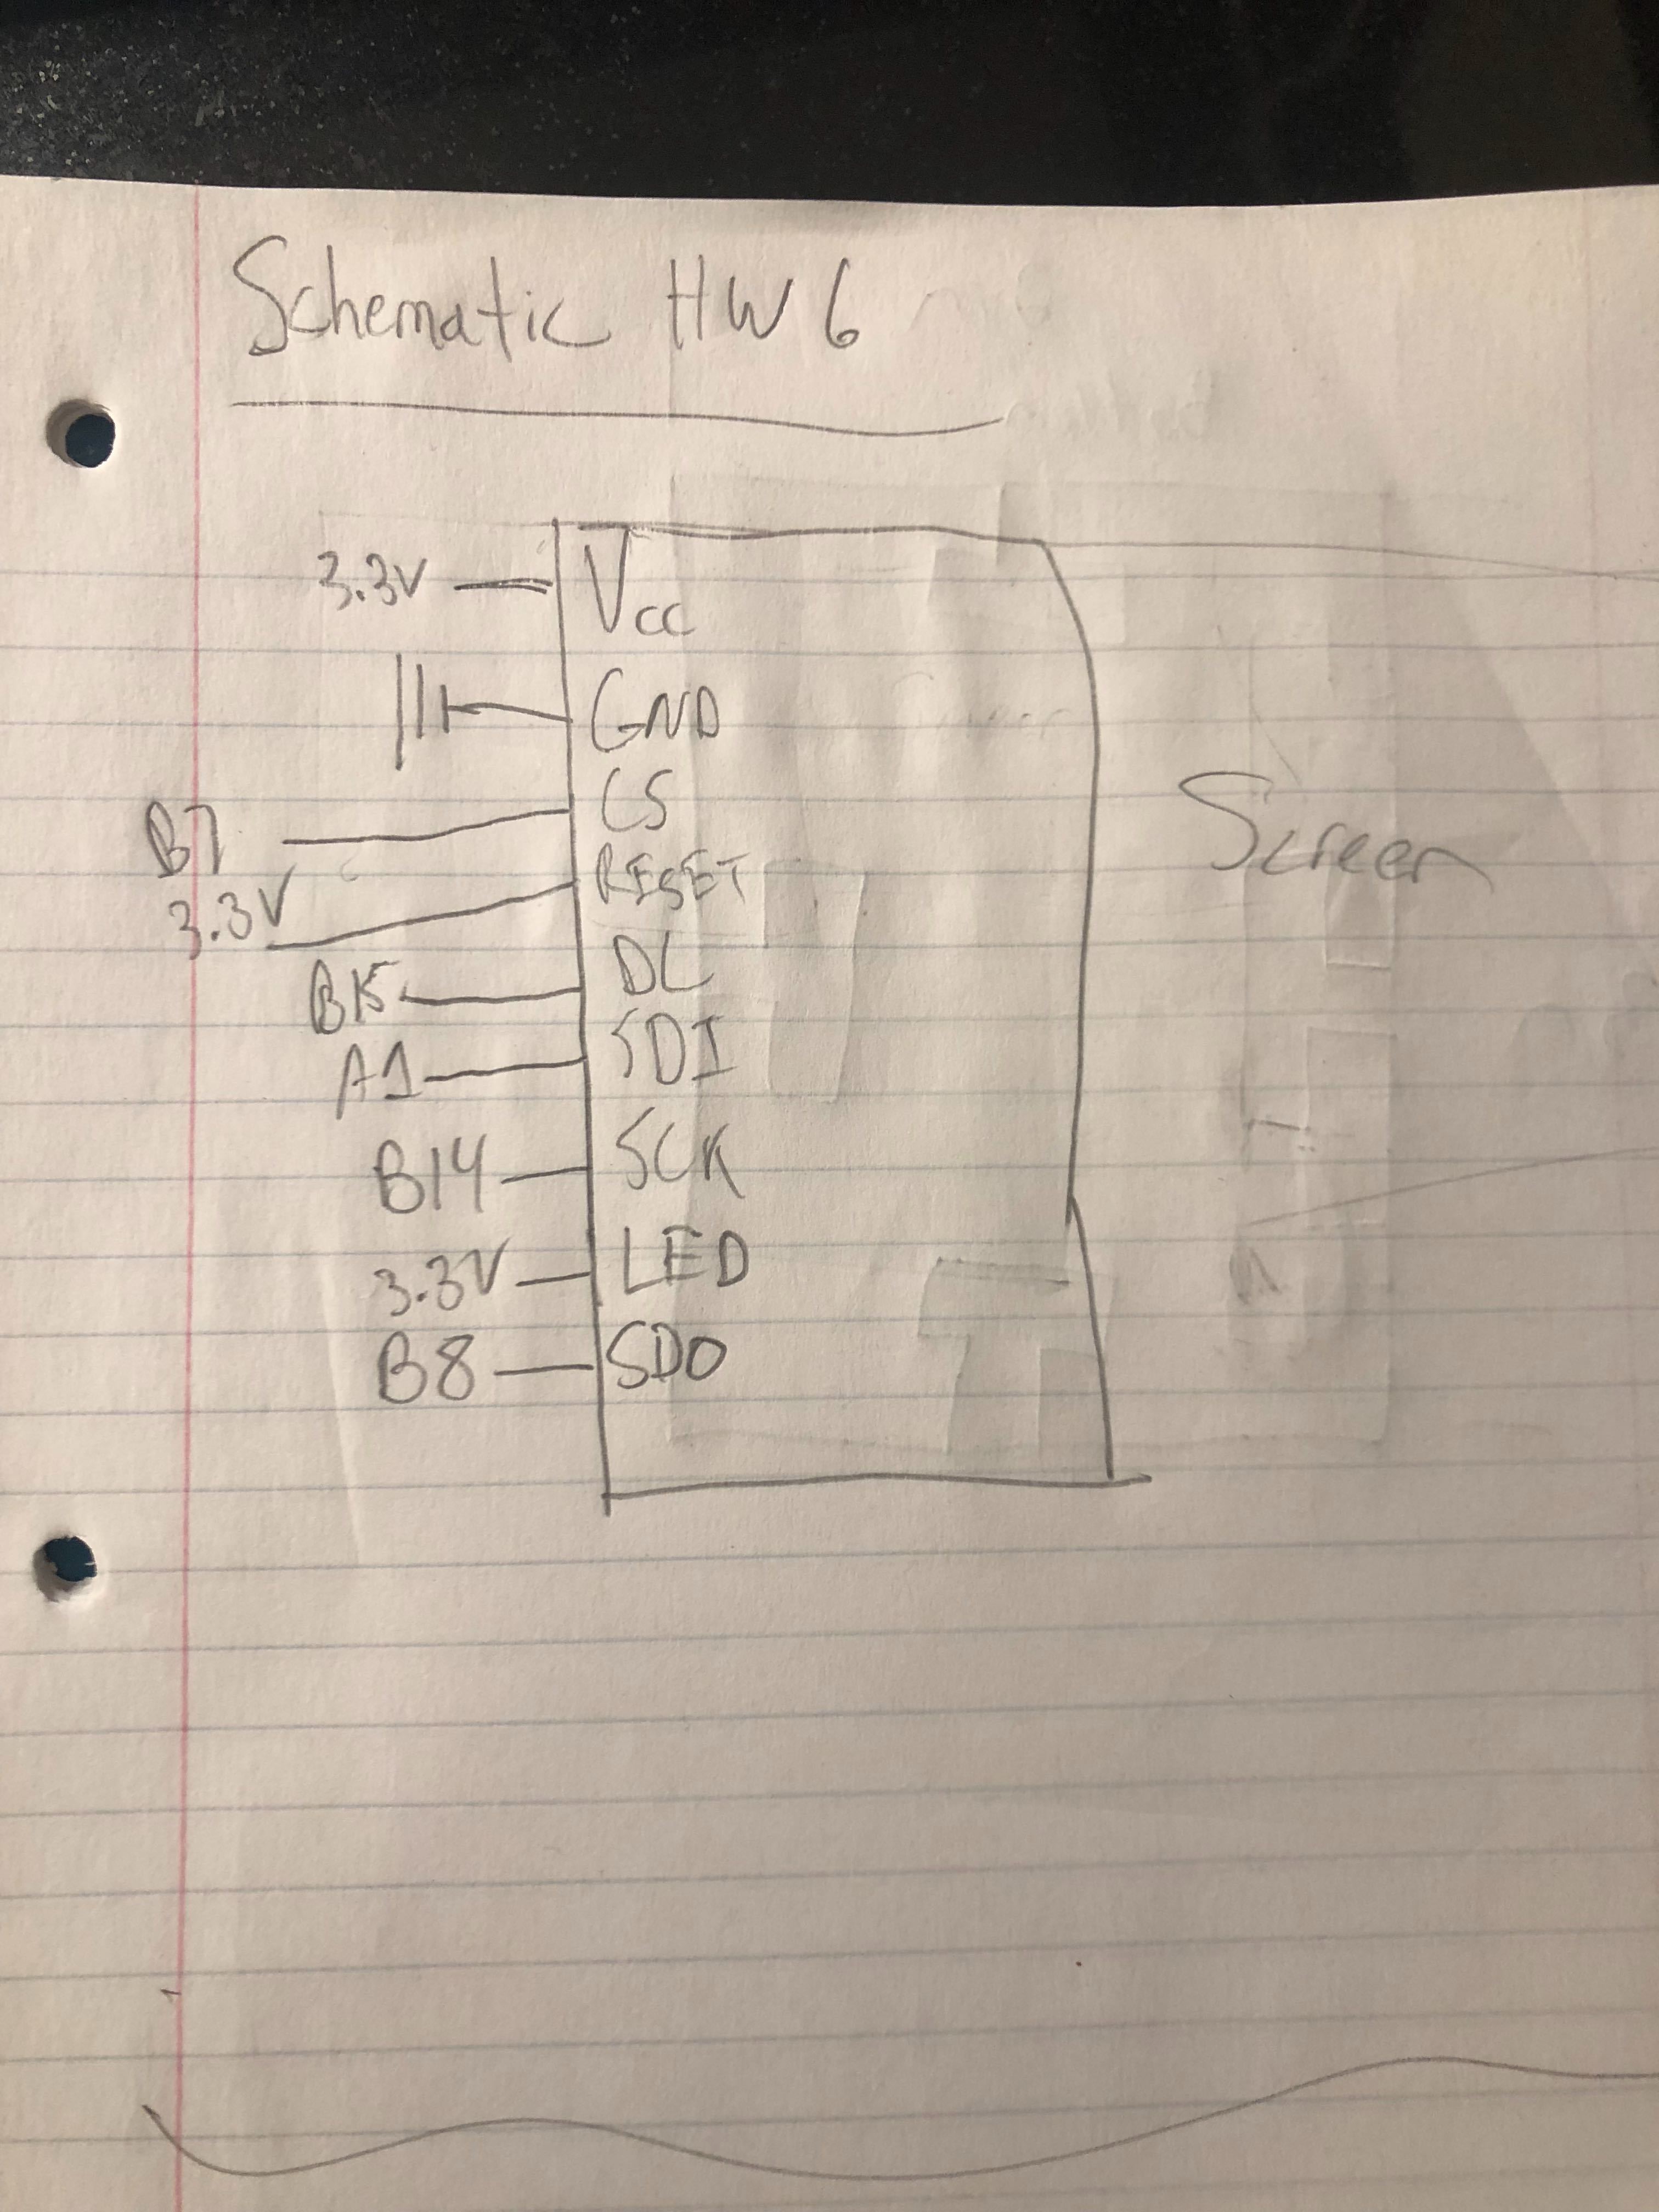 Schematic HW 6
3.3V Vcc
GND
B7 CS
3.3V RESET
B15 DC
A1 SDI
B14 SCK
3.3V LED
B8 SDO
Screen